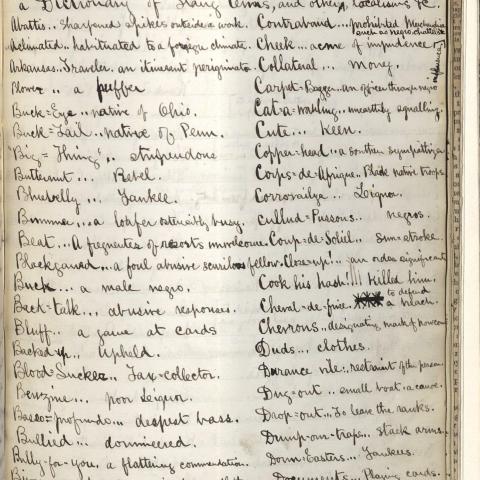 a Dictionary of Slang terms, and others, localising &c
Abattis.. sharpened spikes outside a work.
Aclimated.. habituated to a foreign climate.
Arkansas Traveler. an itinerant
Blower .. a puffer
Buck=Eye.. native of Ohio.
Buck=Tail.. native of Penn.
"Big=Thing".. stupendous
Butternut... Rebel.
Bluebelly... Yankee.
Bummer...a loafer ostensibly busy.
Beat... A frequenter of resorts
Blackguard.. a foul abusive scurilous fellow.
Buck... a male negro.
Back=talk... abusive responses.
Bluff.. a game at cards
Backed up.. Upheld.
Blood=Sucker.. Tax=collector.
Benzine... poor Liquor.
Basso=profundo... deepest bass.
Bullied... domineered.
Bully=for=you, a flattering commendation.
Contraband... prohibited Merchandise
such as negro, chattels &c
Cheek.. acme of impudence
Collateral... money.
Carpet=Bagger..an officer through negro
influence
Cat=a=wauling.. unearthly squalling.
Cute... Keen.
Copper=head.. a southern sympathizer
Corps=de=Afrique.. Black native troops
... Liquor.
cullud=Pussons.. negros.
Coup=de=Soliel.. sun=stroke.
Close=up!.. an order significant
Cook his hash!!! Killed him.
Cheval=de=frise. to defend a breach.
Chevrons..designating mark of
Duds... clothes.
Durance vile.. restraint of the person.
Dug=out.. small boat=a canoe.
Drop=out..To leave the ranks.
Dump=our=traps... stack arms.
Down=Easters... Yankees.
Documents... Playing cards.